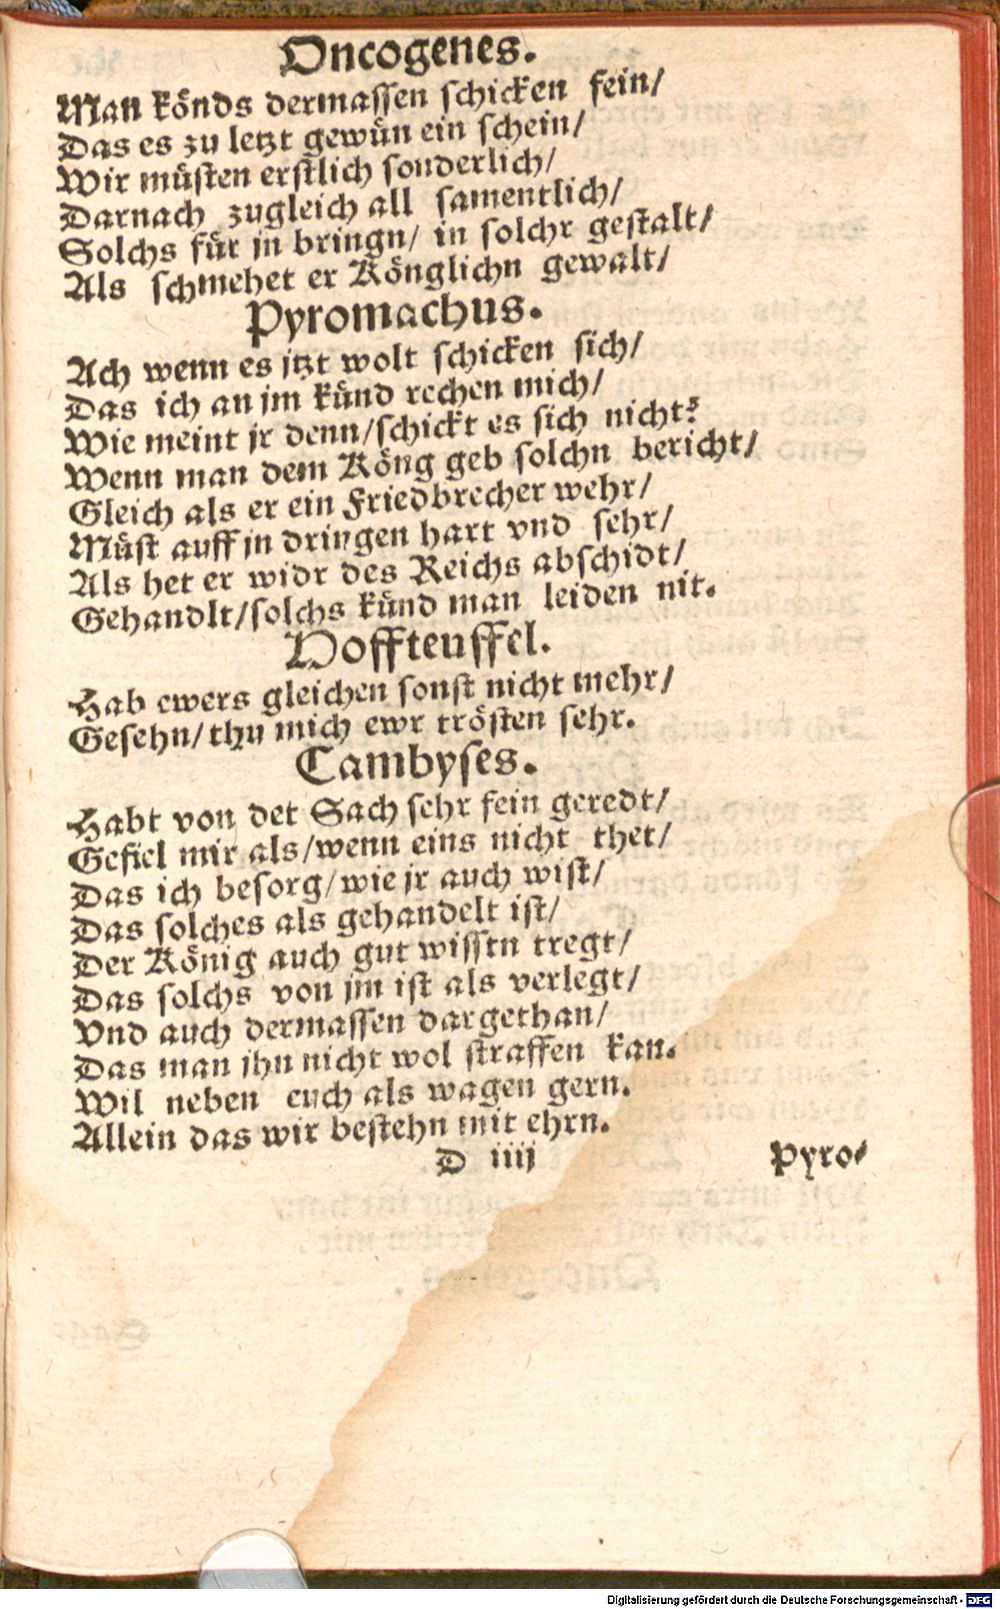 Oncogenes.
Man könds dermassen schicken fein/
Das es zu letzt gewün ein schein/
Wir müsten erstlich sonderlich/
Darnach zugleich all samentlich/
Solchs für jn bringn/ in solchr gestalt/
Als schmehet er Könglichn gewalt/
Pyromachus.
Ach wenn es jtzt wolt schicken sich/
Das ich an jm künd rechen mich/
Wie meint jr denn/schickt es sich nicht?
Wenn man dem Köng geb solchn bericht/
Gleich als er ein Friedbrecher wehr/
Müst auff jn dringen hart vnd sehr/
Als het er widr des Reichs abschidt/
Gehandlt/solchs künd man leiden nit.
Hoffteuffel.
Hab ewers gleichen sonst nicht mehr/
Gesehn/thu mich ewr trösten sehr.
Cambyses.
Habt von det Sach sehr fein geredt/
Gefiel mir als/wenn eins nicht thet/
Das ich besorg/wie jr auch wist/
Das solches als gehandelt ist/
Der König auch gut wissen tregt/
Das solchs von jm ist als verlegt/
Vnd auch dermassen dargethan/
Das man jhn nicht wol straffen kan.
Wil neben euch als wagen gern.
Allein das wir bestehn mit ehrn.
D iiij
Pyro-
Digitalisierung gefördert durch die Deutsche Forschungsgemeinschaft - DFG